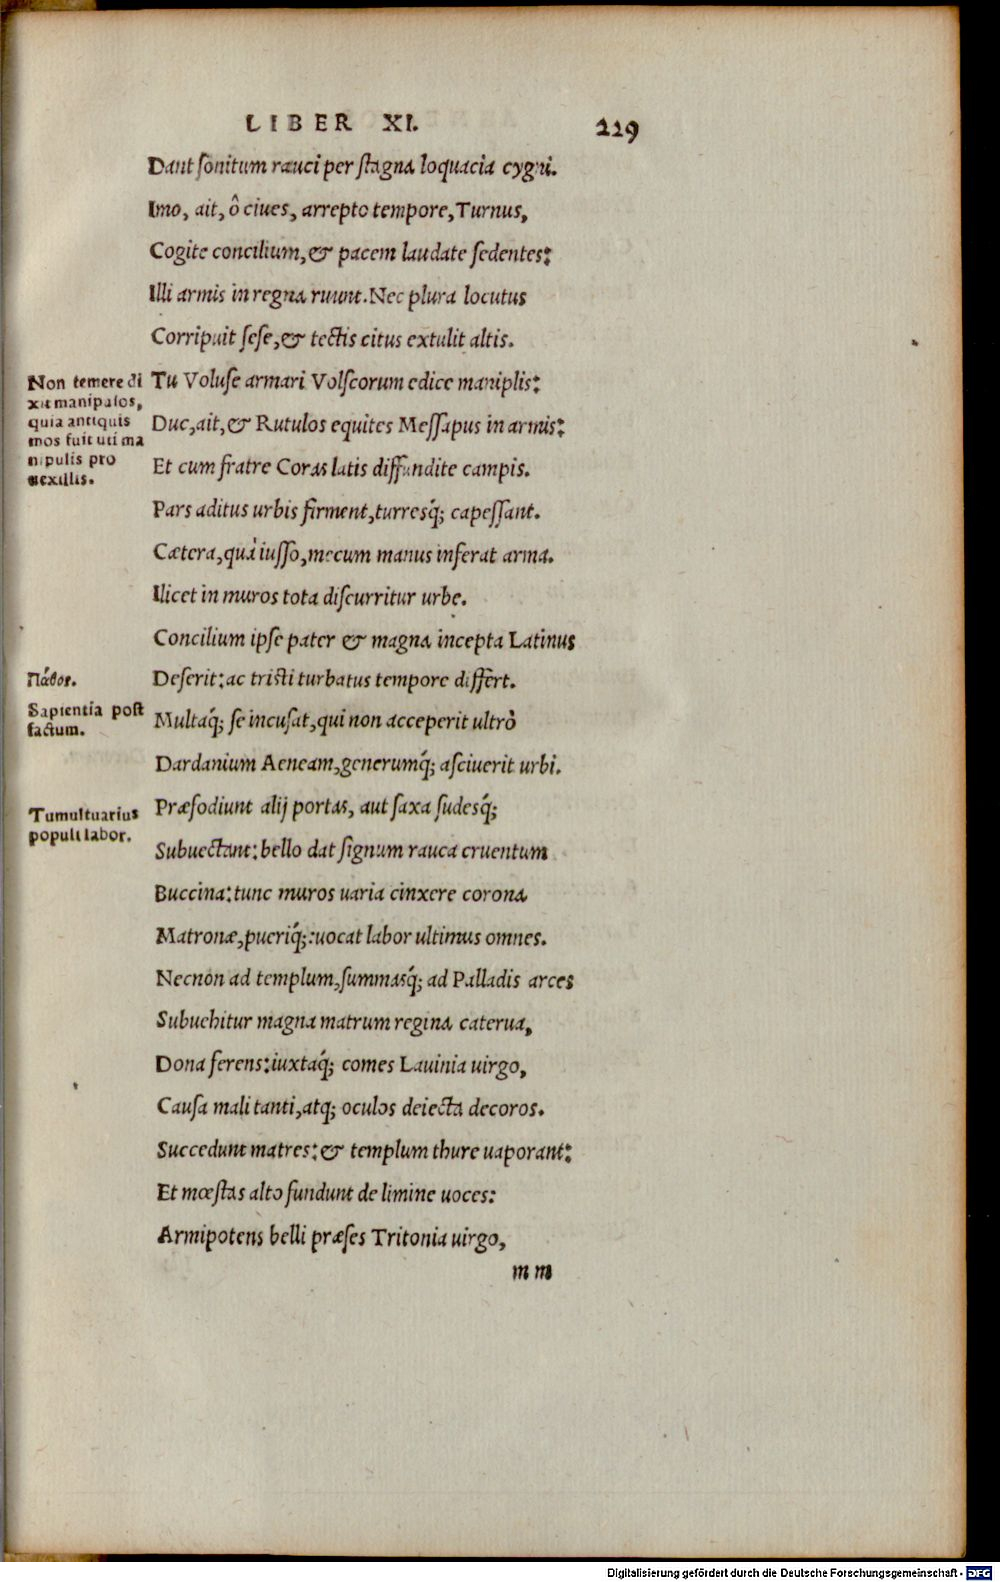 LIBER XI. 229
Dant ſonitum rauci per ſtagna loquacia cygni.
Imo, ait, ô ciues, arrepto tempore, Turnus,
Cogite concilium, & pacem laudate ſedentes:
Illi armis in regna ruunt. Nec plura locutus
Corripuit ſeſe, & tectis citus extulit altis.
Tu Voluſe armari Volſcorum edice maniplis:
Duc, ait, & Rutulos equites Meſſapus in armis:
Et cum fratre Coras latis diffundite campis.
Pars aditus urbis firment, turresq́; capeſſant.
Cætera, quà iuſſo, mecum manus inferat arma.
Ilicet in muros tota diſcurritur urbe.
Concilium ipſe pater & magna incepta Latinus
Deſerit: ac triſti turbatus tempore differt.
Multaq́; ſe incuſat, qui non acceperit ultrò
Dardanium Aeneam, generumq́; aſciuerit urbi.
Præfodiunt alij portas, aut ſaxa ſudesq́;
Subuectant: bello dat ſignum rauca cruentum
Buccina: tunc muros uaria cinxere corona
Matronæ, pueriq́;: uocat labor ultimus omnes.
Necnon ad templum, ſummasq́; ad Palladis arces
Subuehitur magna matrum regina caterua,
Dona ferens: iuxtaq́; comes Lauinia uirgo,
Cauſa mali tanti, atq; oculos deiecta decoros.
Succedunt matres: & templum thure uaporant:
Et mœſtas alto fundunt de limine uoces:
Armipotens belli præſes Tritonia uirgo,
m m
Non temere di
xit manipulos,
quia antiquis
mos fuit uti ma
nipulis pro
uexillis.
Πάθος.
Sapientia poſt
factum.
Tumultuarius
populi labor.
Digitalisierung gefördert durch die Deutsche Forschungsgemeinschaft - DFG